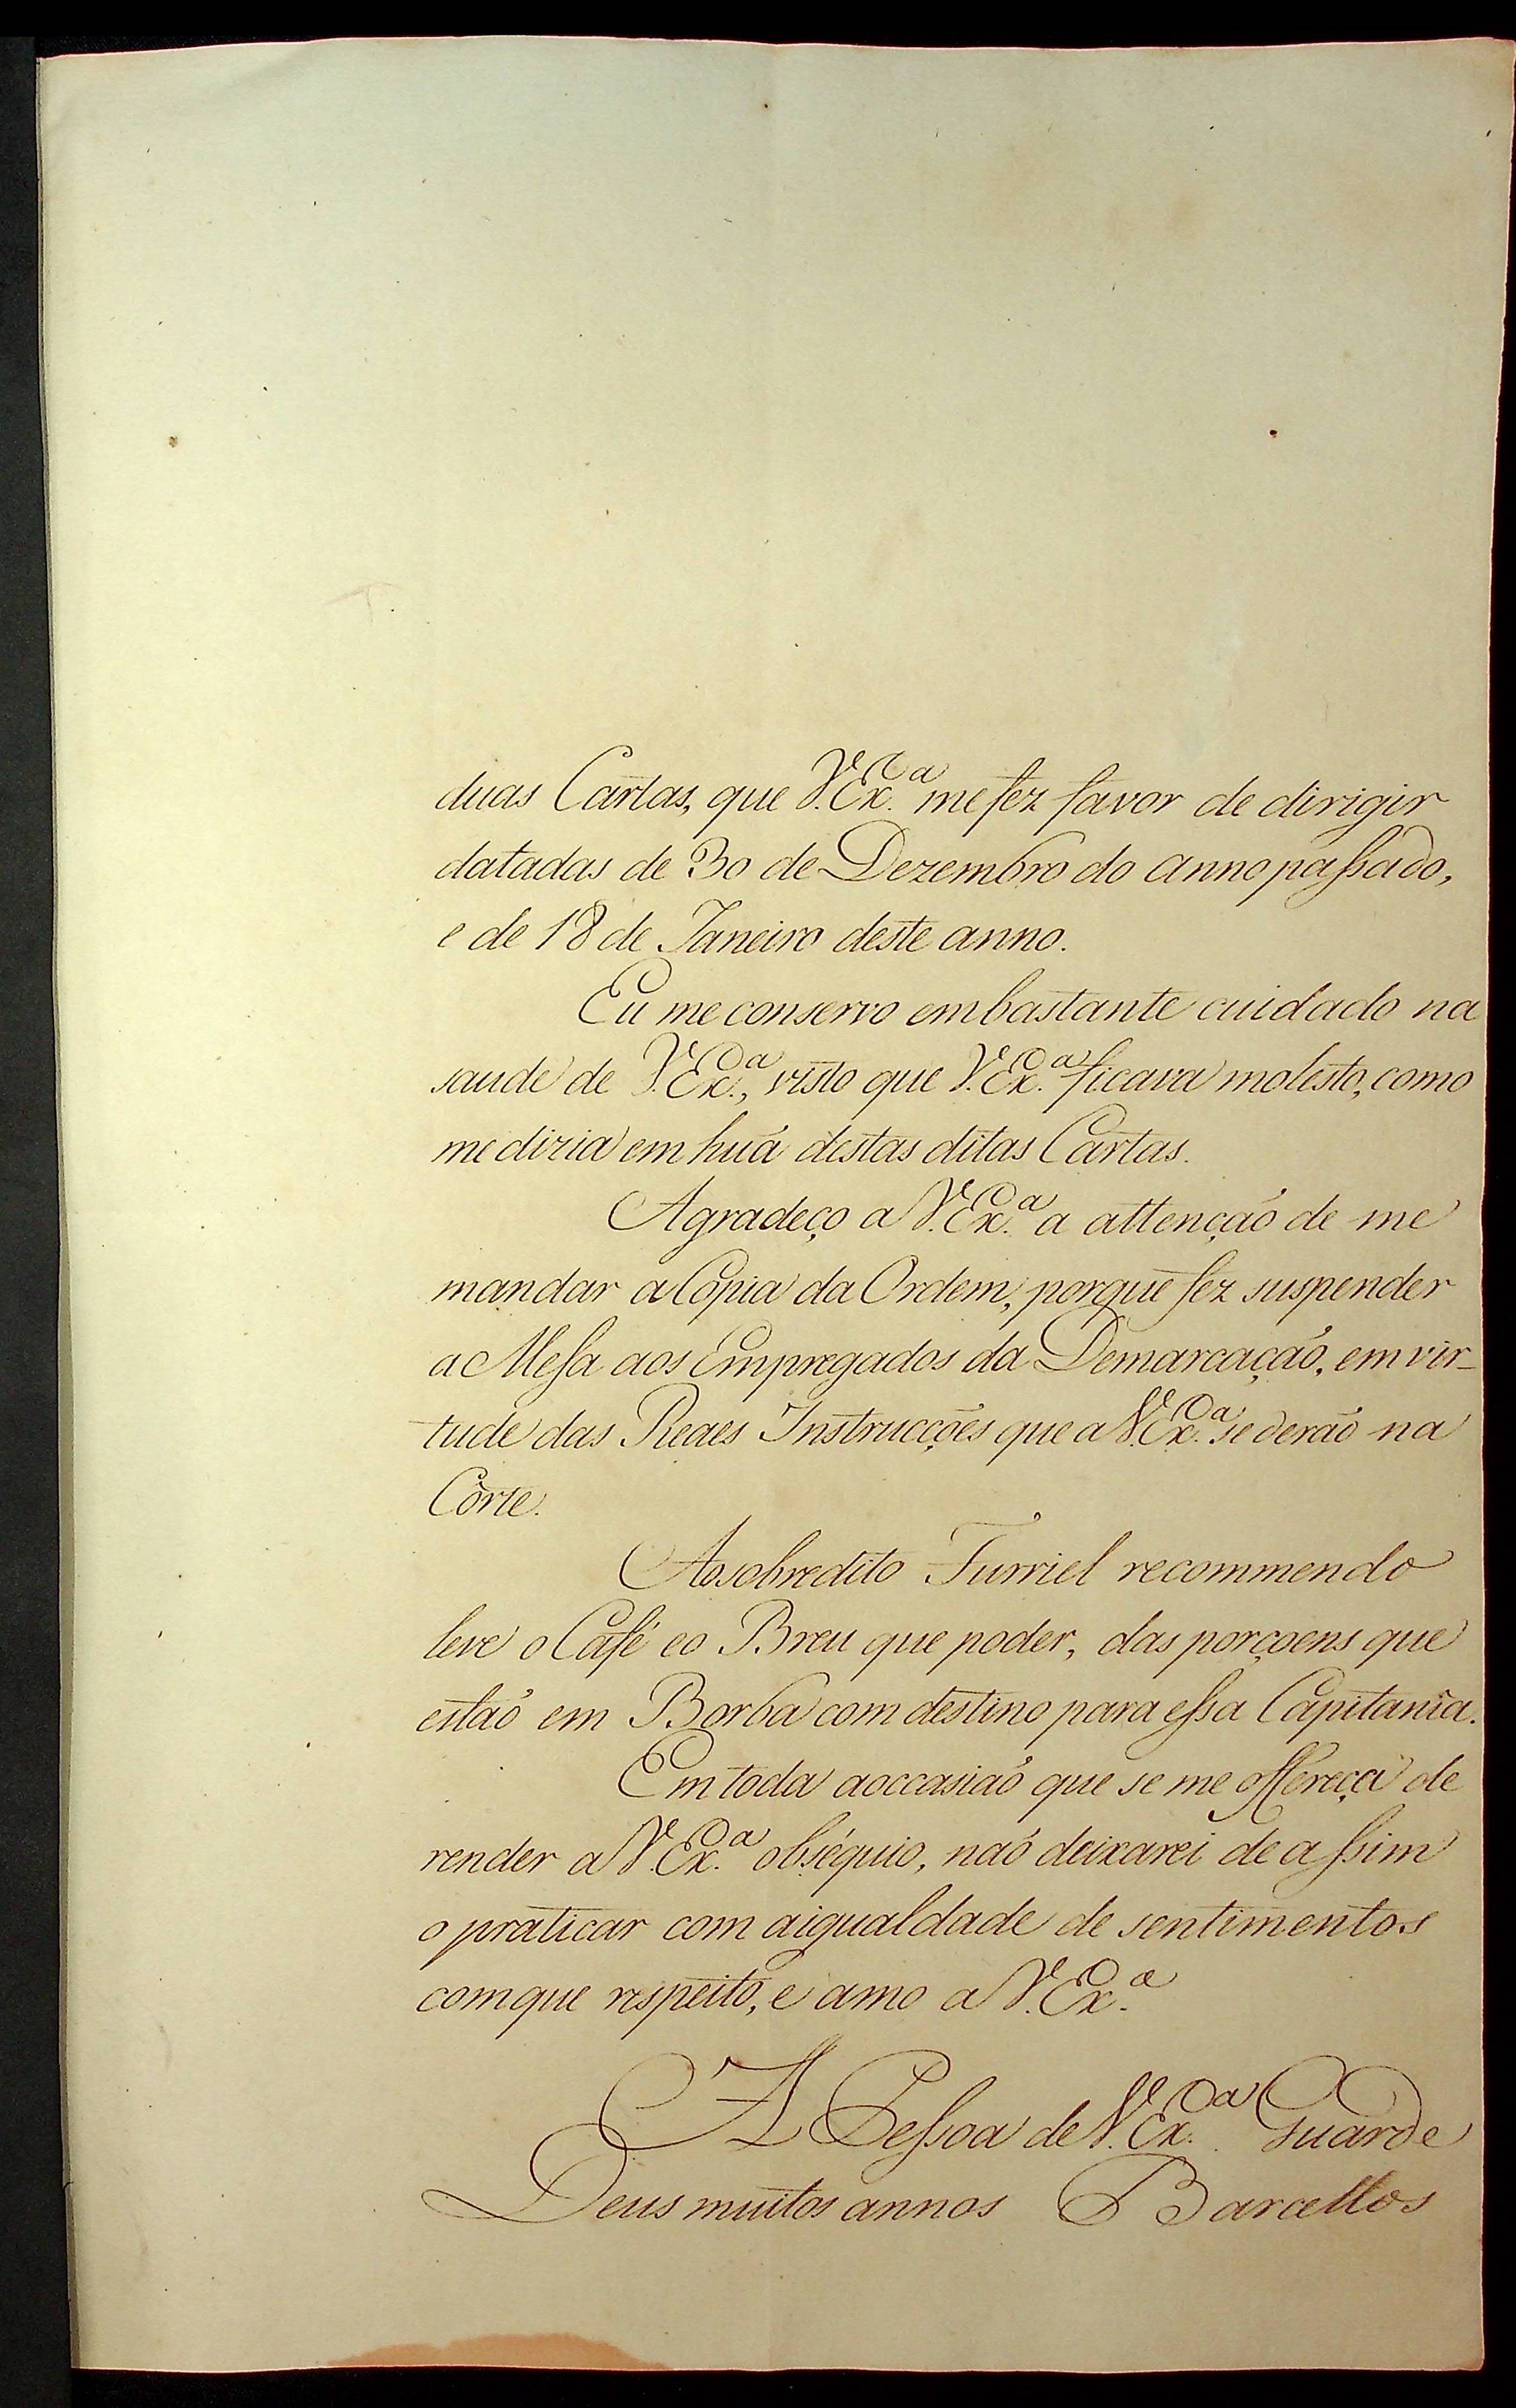 duas Cartas, que V. Ex.ª me fez favor de dirigir
datadas de 30 de Dezembro do anno passado,
e de 18 de Janeiro deste anno.
Eu me conservo em bastante cuidado na
saude de V. Ex.ª, visto que V. Ex.ª ficava molesto, como
me dizia em huá destas ditas Cartas.
Agradeço a V. Ex.ª a attençaõ de me
mandar a Cópia da Ordem, porque fez suspender
a Mesa aos Empregados da Demarcaçaõ, em vir-
tude das Reaes Instrucções que a V. Ex.ª se deraõ na
Côrte.
Ao sobredito Furriel recommendo
leve o Café e o Breu que poder, das porçoens que
estaõ em Borba com destino para essa Capitania.
Em toda a occasiaõ que se me offereça de
render a V. Ex.ª obséquio, naõ deixarei de assim
o praticar com a igualdade de sentimentos
com que respeito, e amo a V. Ex.ª
A Pessoa de V. Ex.ª Guarde
Deus muitos annos Barcellos